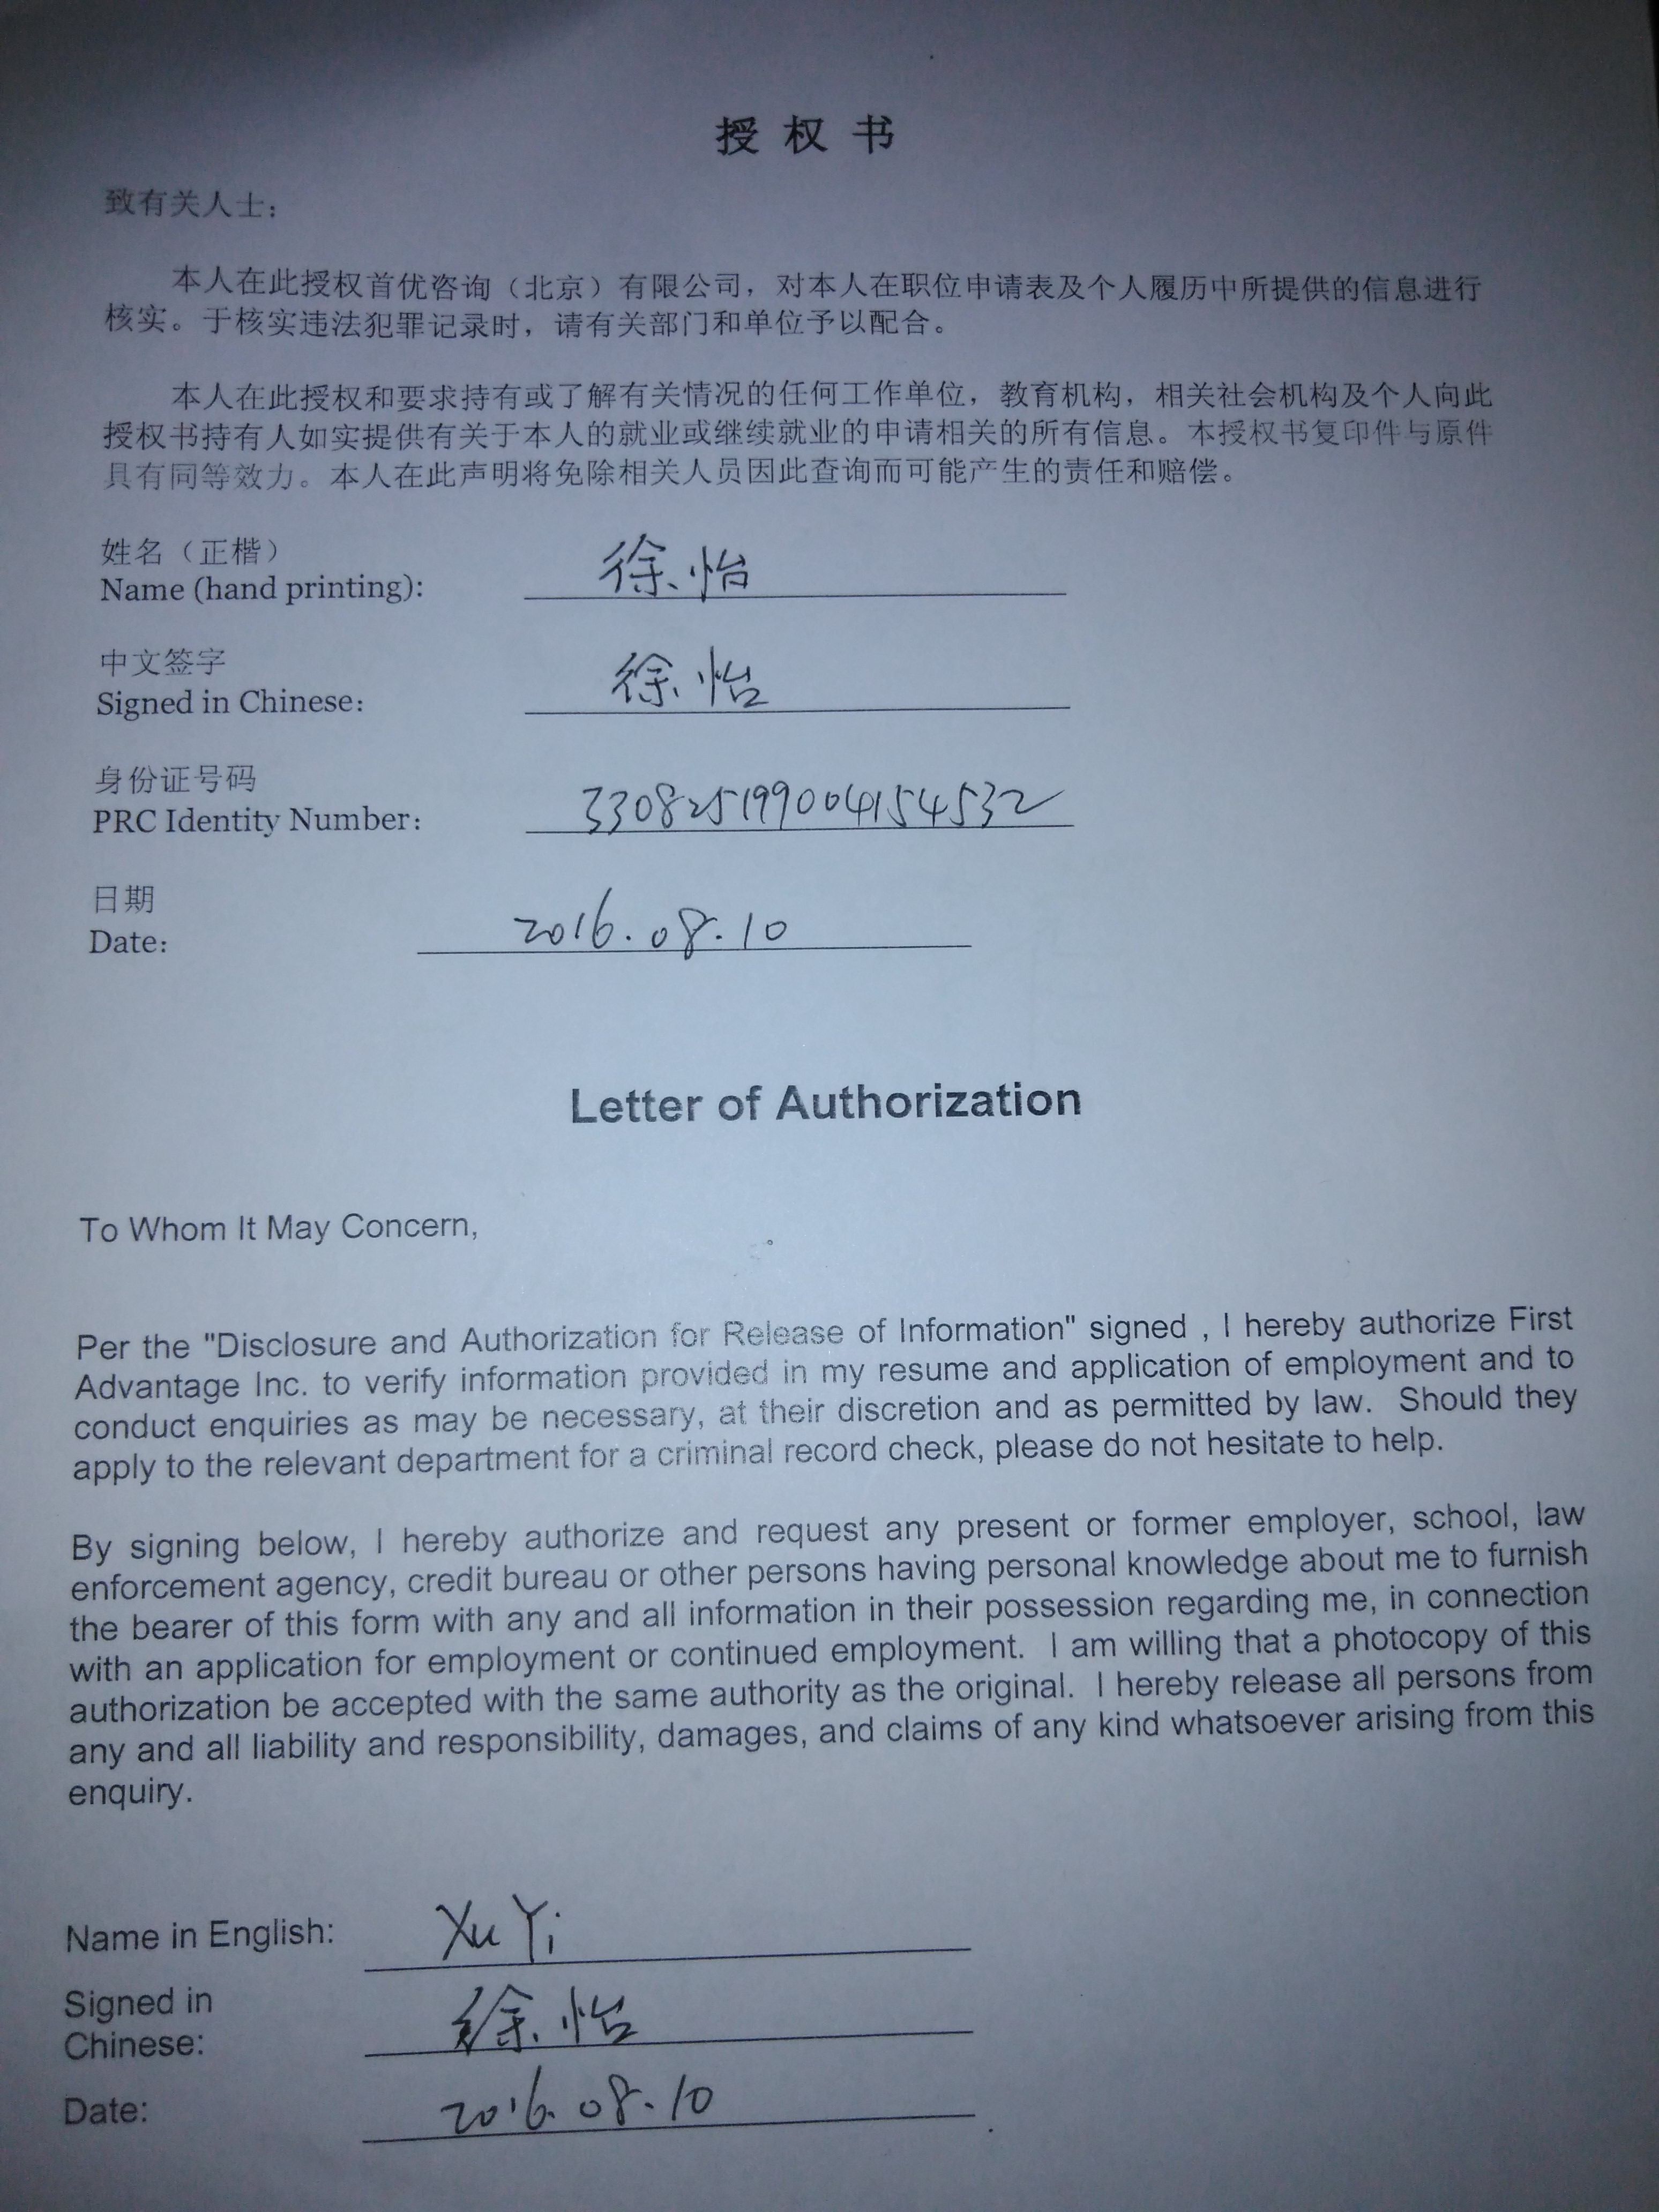 授权书
致有关人士：
本人在此授权首优咨询（北京）有限公司，对本人在职位申请表及个人履历中所提供的信息进行
核实。于核实违法犯罪记录时，请有关部门和单位予以配合。
本人在此授权和要求持有或了解有关情况的任何工作单位，教育机构，相关社会机构及个人向此
授权书持有人如实提供有关于本人的就业或继续就业的申请相关的所有信息。本授权书复印件与原件
具有同等效力。本人在此声明将免除相关人员因此查询而可能产生的责任和赔偿。
姓名（正楷）
Name (hand printing): 徐怡
中文签字
Signed in Chinese: 徐怡
身份证号码
PRC Identity Number: 330825199004154532
日期
Date: 2016.08.10
Letter of Authorization
To Whom It May Concern,
Per the "Disclosure and Authorization for Release of Information" signed , I hereby authorize First
Advantage Inc. to verify information provided in my resume and application of employment and to
conduct enquiries as may be necessary, at their discretion and as permitted by law. Should they
apply to the relevant department for a criminal record check, please do not hesitate to help.
By signing below, I hereby authorize and request any present or former employer, school, law
enforcement agency, credit bureau or other persons having personal knowledge about me to furnish
the bearer of this form with any and all information in their possession regarding me, in connection
with an application for employment or continued employment. I am willing that a photocopy of this
authorization be accepted with the same authority as the original. I hereby release all persons from
any and all liability and responsibility, damages, and claims of any kind whatsoever arising from this
enquiry.
Name in English: Xu Yi
Signed in
Chinese: 徐怡
Date: 2016.08.10